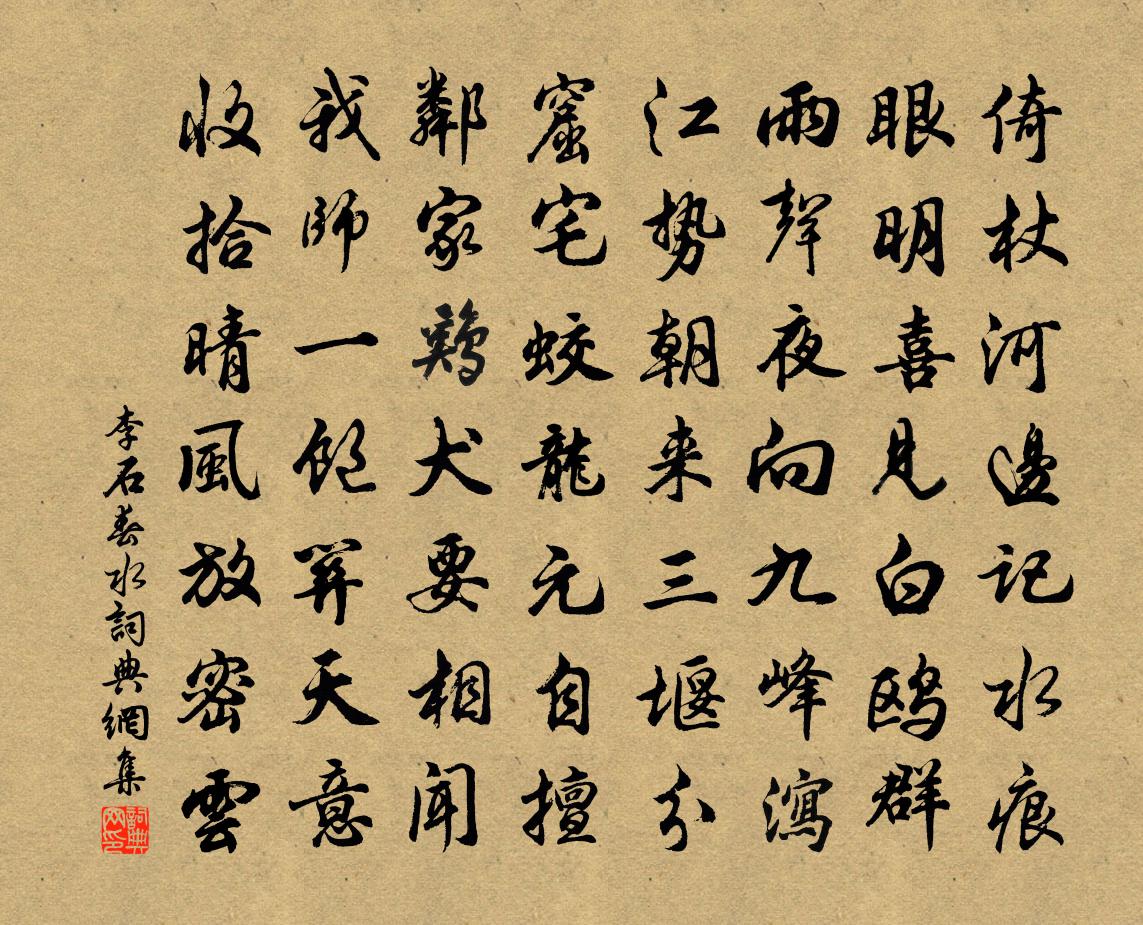 倚杖河邊記水痕
眼明喜見白鸥群
雨聲夜向九峰瀉
江勢朝来三堰分
窟宅蛟龍元自擅
鄰家鷄犬要相聞
我師一飽算天意
收拾晴風放密雲
李石春水詞典網集
詞典网印